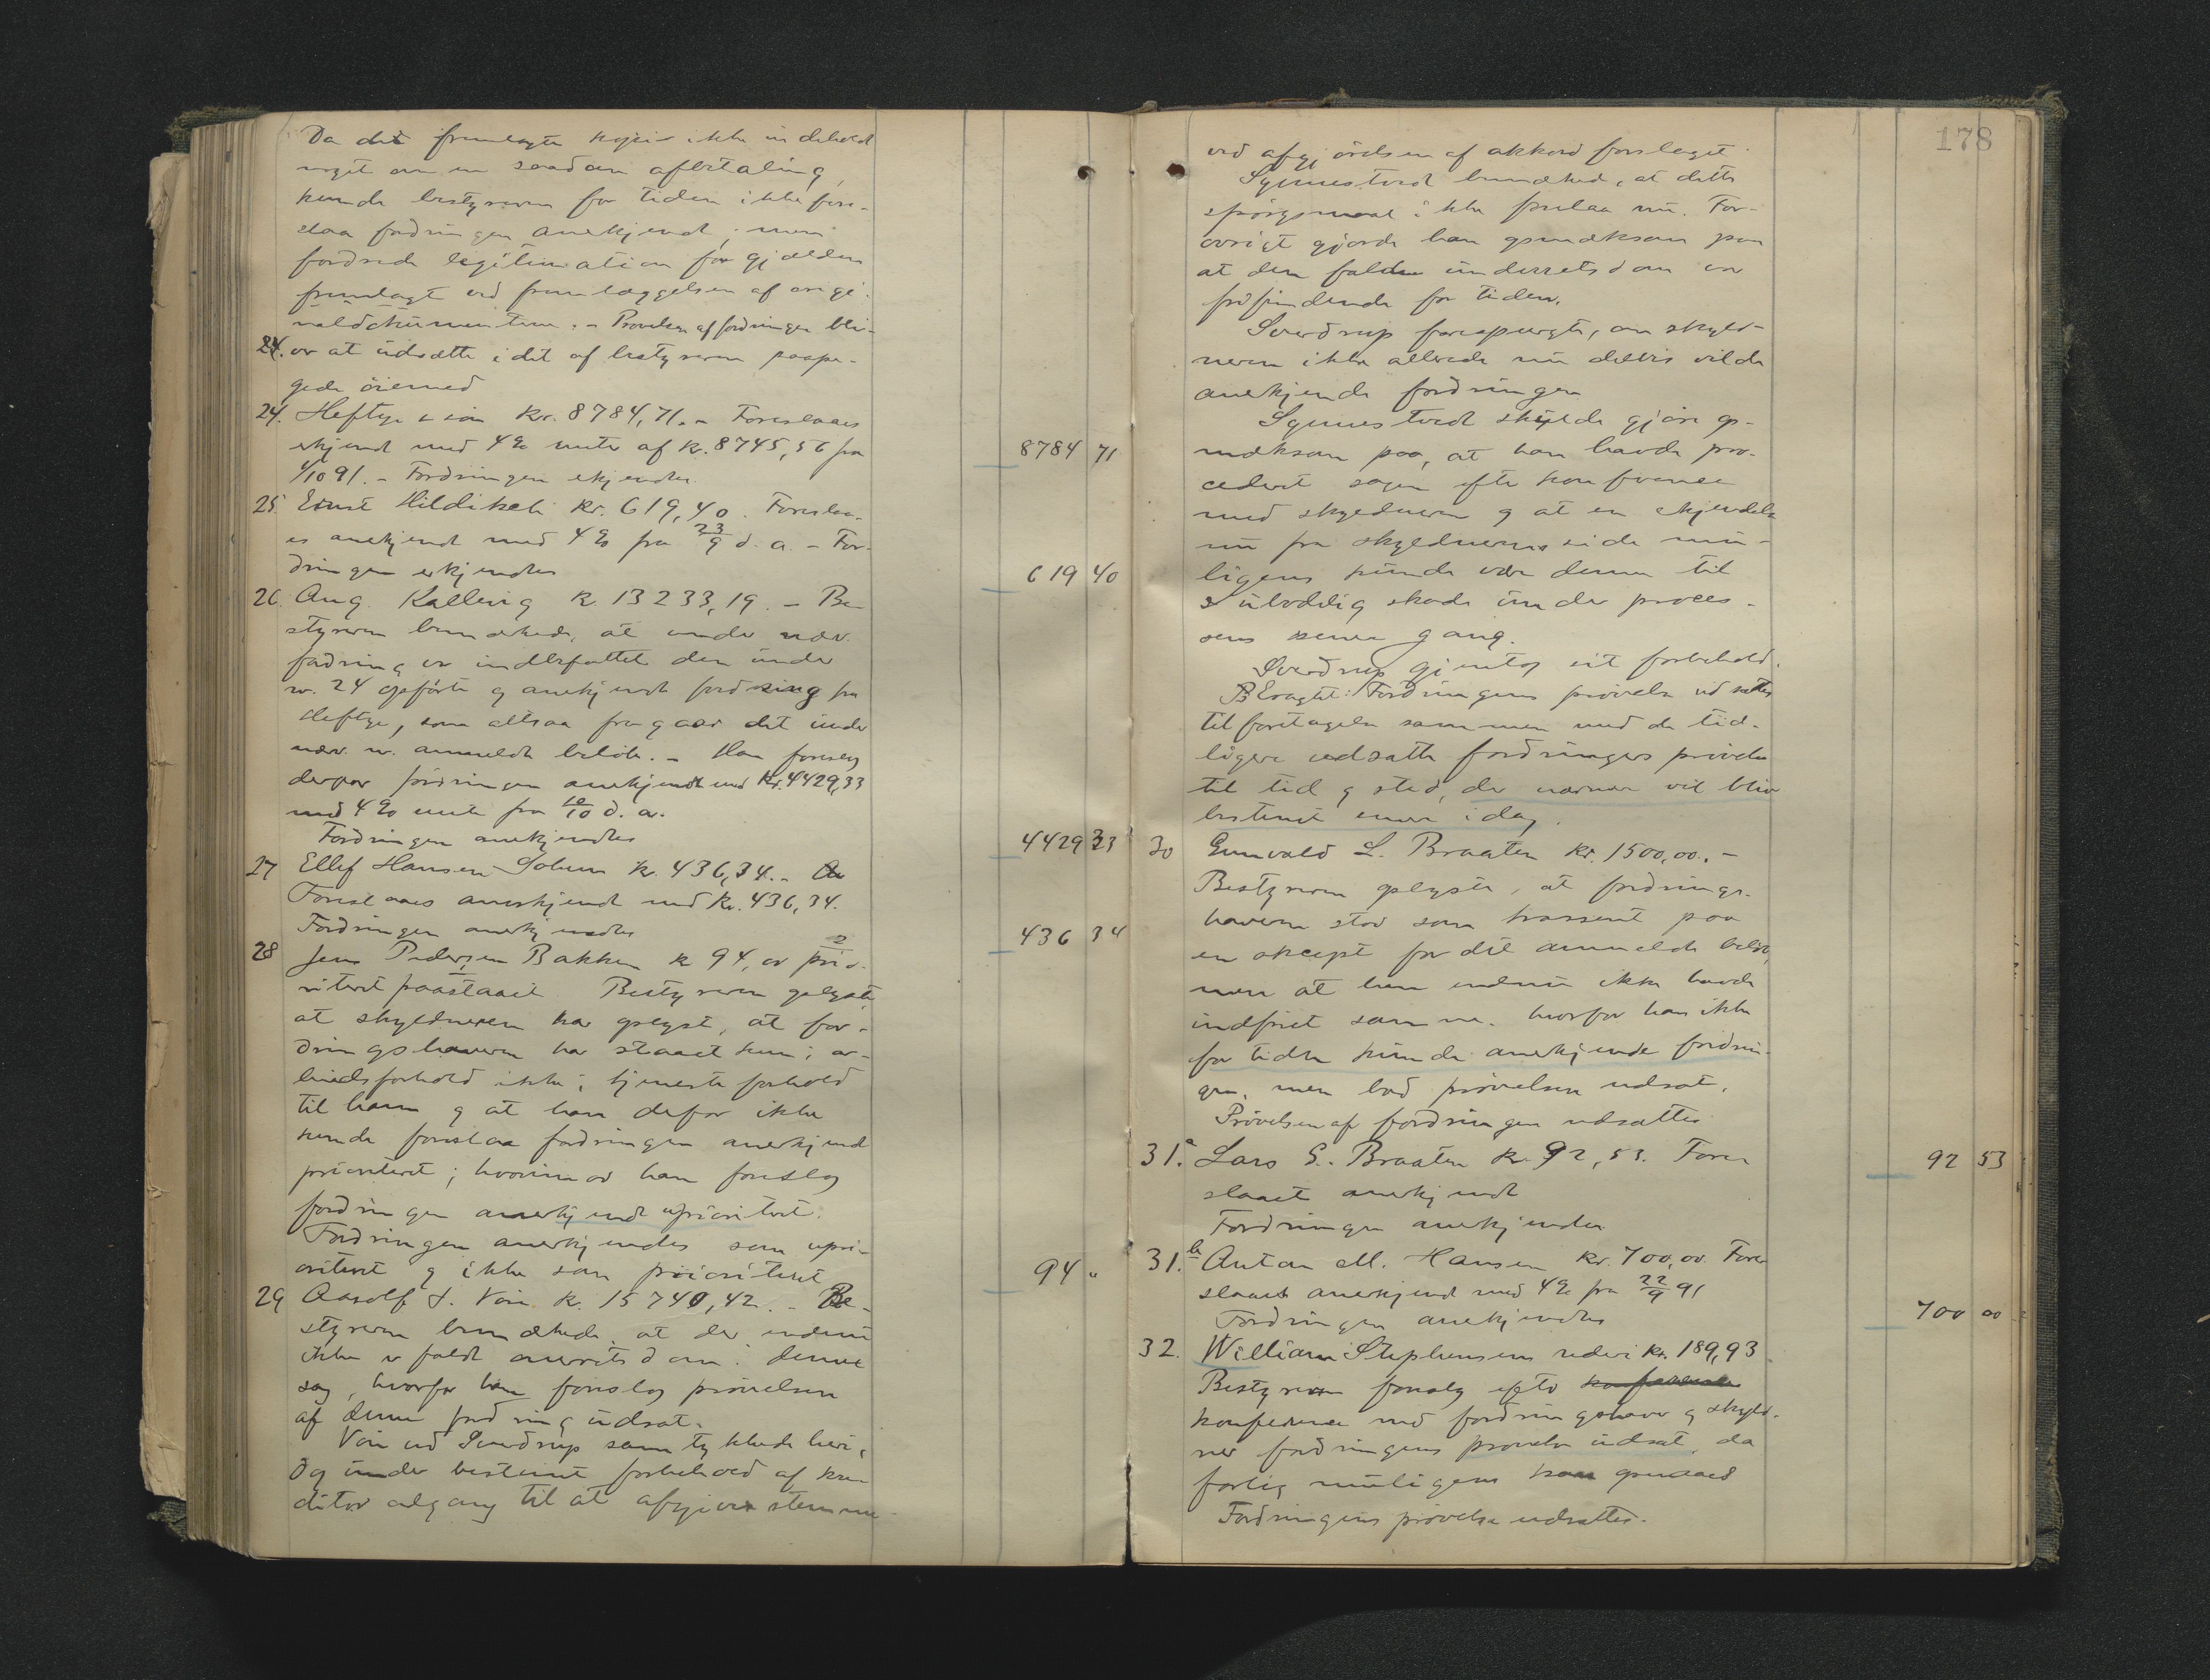 Da det fremlagte kopi ikke indeholdt
noget om en saadan aftaling,
kunde bestyreren for tiden ikke fore-
slaa fordringen anerkjendt; men
fordrede legitimation for gjælden
fremlagt ved fremlæggelsen af origi-
naldokumentene. - Prøvelsen af fordringen bli-
24. ver at udsætte i det af bestyreren paape-
gede øiemed
24. Heftye & søn Kr. 8784,71. - Foreslaaes
erkjendt med 4% rente af K. 8745,56 fra
1/10 91. - Fordringen erkjendtes. 8784 71
25. Ernst Hildisch Kr. 619,40. Foreslaa-
es anerkjendt med 4% fra 23/9 d. a. - For-
dringen erkjendtes 619 40
26. Aug. Kallevig K. 13233,19. - Be-
styreren bemærkede, at under nær.
fordring er indbefattet den under
nr. 24 opførte og anerkjendt fordring fra
Heftye, som altsaa fragaar det under
nær. nr. anmeldte beløb. - Han foreslog
derfor fordringen anerkjendt med Kr. 4429,33
med 4% rente fra 10/10 d. a.
Fordringen anerkjendtes 4429 33
27 Ellef Hansen Solum K. 436,34. -
Foreslaaes anerkjendt med Kr. 436,34.
Fordringen anerkjendtes 436 34
28 Jens Pedersen Bakken K 94, pri-
oritet paastaaet. Bestyreren oplyste,
at skyldneren har oplyst, at for-
dringshaveren har staaet kun i ar-
beidsforhold ikke i tjenesteforhold
til ham og at han derfor ikke
kunde foreslaa fordringen anerkjendt
prioriteret; hvorimod han foreslog
fordringen anerkjendt uprioritert.
Fordringen anerkjendtes som upri-
oritert og ikke som prioriteret 94 "
29 Aasolf S. Voie K. 15740,42. - Be-
styreren bemærkede, at der endnu
ikke er faldt overretsdom i denne
sag, hvorfor han foreslog prøvelsen
af denne fordring udsat.
Voie ved Sverdrup samtykkede heri,
dog under bestemt forbehold af kre-
ditor adgang til at afgive stemme
178
ved afgjørelsen af akkordforslaget.
Synnestvedt bemærkede, at dette
spørgsmaal ikke forelaa nu. For-
øvrigt gjorde han opmærksom paa
at den faldne underretsdom var
frifindende for tiden.
Sverdrup forespurgte, om skyld-
neren ikke allerede nu delvis vilde
anerkjende fordringen
Synnestvedt skulde gjøre op-
mærksom paa, at han havde pro-
cedert sagen efter konference
med skyldneren og at en erkjendelse
nu fra skyldnerens side mu-
ligens kunde være denne til
ubodelig skade under proces-
sens senere gang.
Sverdrup gjentog sit forbehold.
Eragtet: Fordringens prøvelse udsættes
til foretagelse sammen med de tid-
ligere udsatte fordringers prøvelse
til tid og sted, der nærmere vil blive
bestemt senere i dag.
30 Gunvald L. Braaten Kr. 1500,00. -
Bestyreren oplyste, at fordrings-
haveren stod som trassent paa
en akcept for det anmeldte beløb,
men at han endnu ikke havde
indfriet samme, hvorfor han ikke
for tiden kunde anerkjende fordrin-
gen, men bad prøvelsen udsat.
Prøvelsen af fordringen udsattes
31.a Lars G. Braaten K. 92,53. Fore- 92 53
slaaet anerkjendt
Fordringen anerkjendtes
31.b Anton M. Hansen Kr. 700,00. Fore-
slaaet anerkjendt med 4% fra 22/9 91
Fordringen anerkjendtes 700 00
32. William Stephensens rederi Kr. 189,93
Bestyreren foreslog efter konference
konference med fordringshaver og skyld-
ner fordringens prøvelse udsat, da
forlig muligens kan opnaaes
Fordringens prøvelse udsættes.